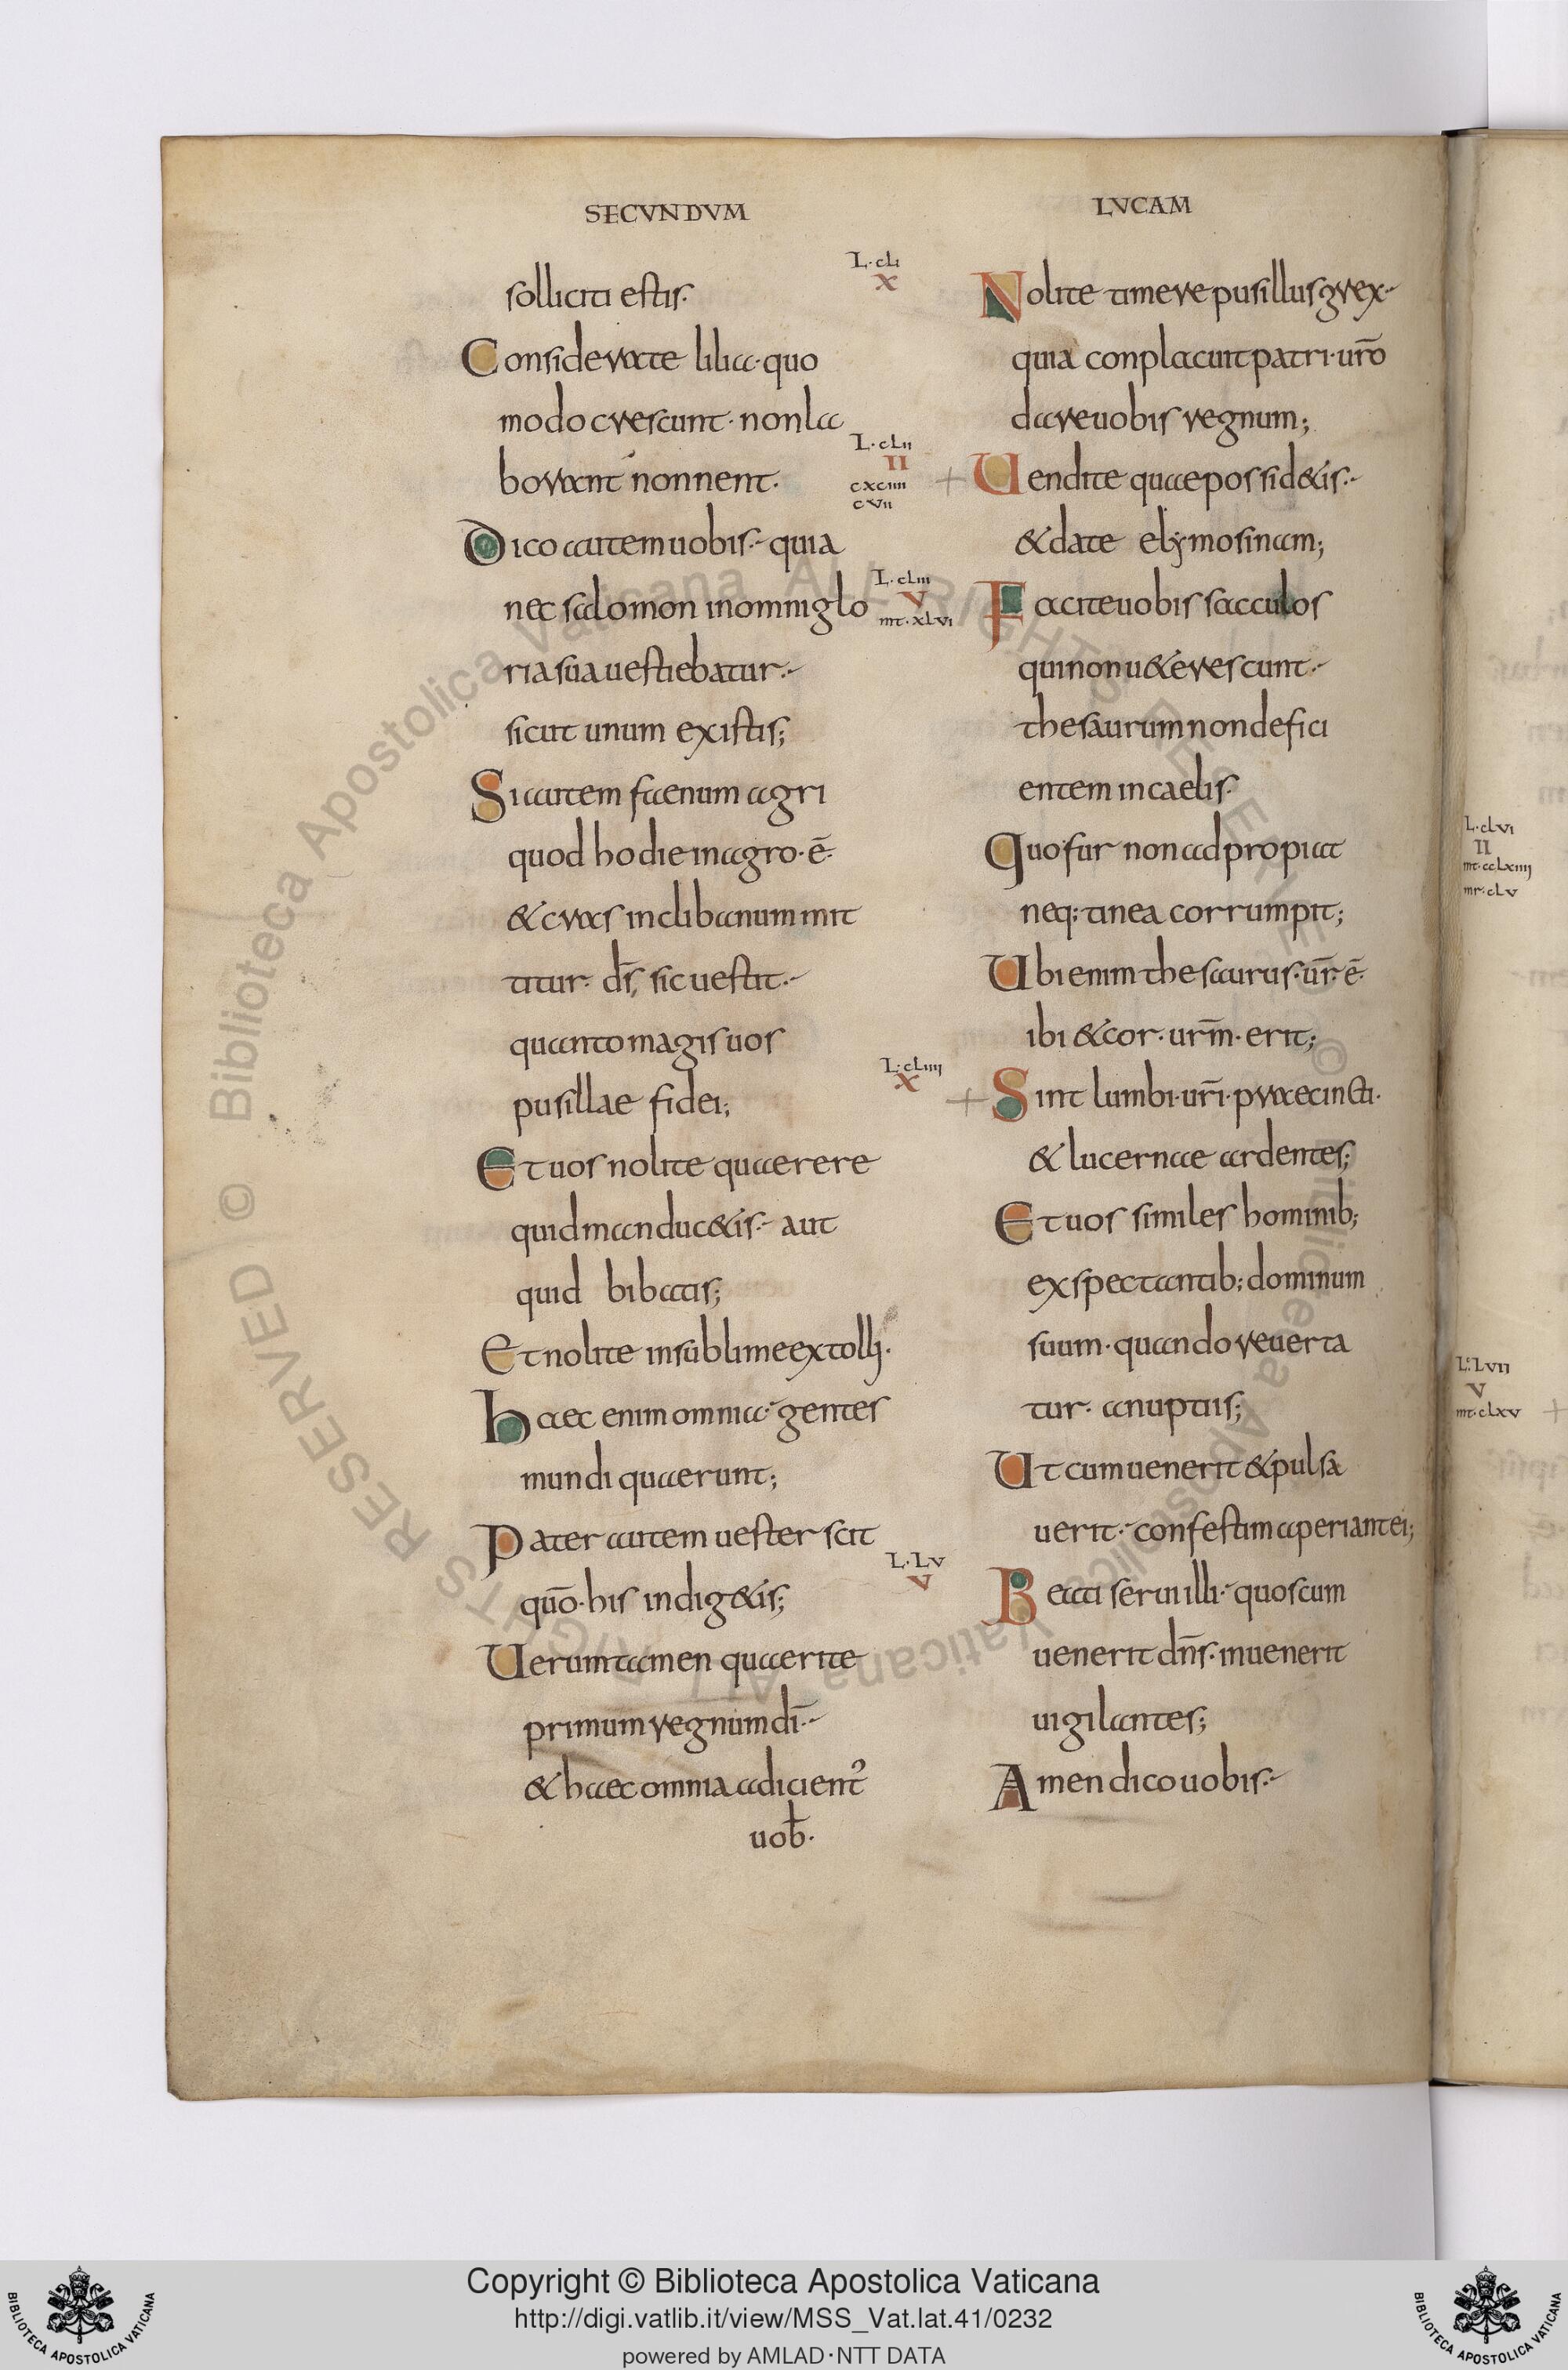 SECVNDVM
solliciti estis.
Considerate lilia. quo
modo crescunt. non la
borant non nent.
Dico autem uobis. quia
nec salomon in omni glo
ria sua uestiebatur.
sicut unum ex istis;
Si autem faenum agri
quod hodie in agro. ē.
& cras in clibanum mit
titur. ds̄, sic uestit.
quanto magis uos
pusillae fidei;
Et uos nolite quaerere
quid manduc&is. aut
quid bibatis;
Et nolite in sublime extolli.
Haec enim omnia gentes
mundi quaerunt;
Pater autem uester scit
quō. his indig&is;
Uerumtamen quaerite
primum regnum dī.
& haec omnia adicient᾿
uob̄.
LVCAM
L. cli
X
Nolite timere pusillus grex.
quia conplacuit patri. ur̄o
dare uobis regnum;
L. clii
II
cxciiii
cvii
+ Uendite quae possid&is.
& date elymosinam;
L. cliii
V
mt. xlvi
Facite uobis sacculos
qui non u&erescunt.
thesaurum non defici
entem in caelis.
Quo fur non adpropiat
neq; tinea corrumpit;
Ubi enim thesaurus. ur̄. ē.
ibi & cor. urm̄. erit;
L. cliiii
X
+ Sint lumbi. ur̄i. praecincti.
& lucernae ardentes;
Et uos similes hominib;
exspectantib; dominum
suum. quando reuerta
tur. a nuptiis;
Ut cum uenerit & pulsa
uerit. confestim aperiant ei;
L. Lv
V
Beati serui illi. quos cum
uenerit dn̄s. inuenerit
uigilantes;
Amen dico uobis.
L. clvi
II
mt. cclxiiii
mr. clv
L. Lvii
V
mt. clxv
+
© Biblioteca Apostolica Vaticana ALL RIGHTS RESERVED © Biblioteca Apostolica Vaticana ALL RIGHTS RESERVED
BIBLIOTECA APOSTOLICA VATICANA
Copyright © Biblioteca Apostolica Vaticana
http://digi.vatlib.it/view/MSS_Vat.lat.41/0232
powered by AMLAD·NTT DATA
BIBLIOTECA APOSTOLICA VATICANA